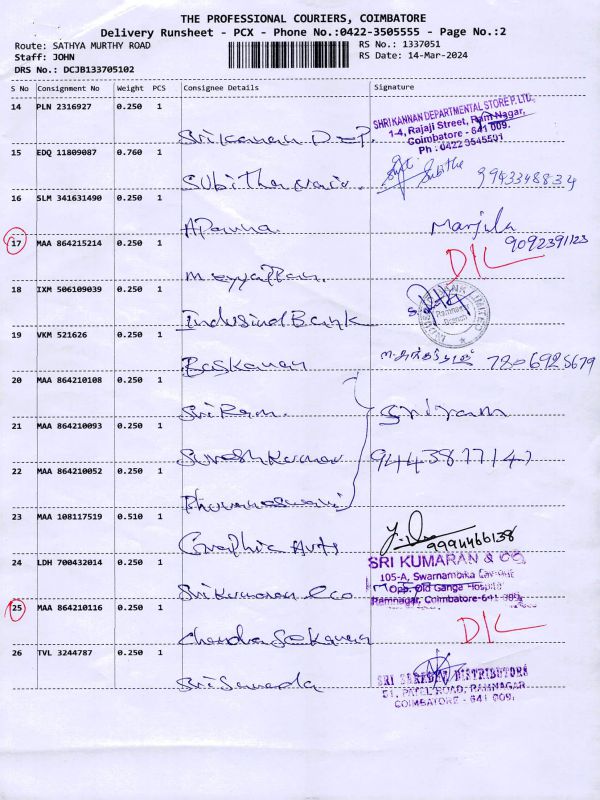 THE PROFESSIONAL COURIERS, COIMBATORE
Delivery Runsheet - PCX - Phone No.:0422-3505555 - Page No.:2
Route: SATHYA MURTHY ROAD RS No.: 1337051
Staff: JOHN RS Date: 14-Mar-2024
DRS No.: DCJB133705102
S No Consignment No Weight PCS Consignee Details Signature
14 PLN 2316927 0.250 1
Srikannan D.P.
SHRI KANNAN DEPARTMENTAL STORE P. LTD.,
1-4, Rajaji Street, Ram Nagar,
Coimbatore - 641 009.
Ph : 0422 3545501
15 EDQ 11809087 0.760 1
Subitha
Subitha 9943348834
16 SLM 341631490 0.250 1
Aparna
Manjula
9092391123
17 MAA 864215214 0.250 1
Meyyappan
D/L
18 IXM 506109039 0.250 1
Indusind Bank
19 VKM 521626 0.250 1
Baskaran
7806925679
20 MAA 864210108 0.250 1
Sri Ram.
Sriram
21 MAA 864210093 0.250 1
Suresh Kumar
9443877147
22 MAA 864210052 0.250 1
Bhuvaneswari
23 MAA 108117519 0.510 1
Graphic Arts
9994466138
24 LDH 700432014 0.250 1
Sri Kumaran & co
SRI KUMARAN & CO
105-A, Swarnambika Layout
Opp. Old Ganga Hospital
Ramnagar, Coimbatore-641 009.
25 MAA 864210116 0.250 1
Chandra Sekaran
D/L
26 TVL 3244787 0.250 1
Sri Sarada
SRI SARADAA DISTRIBUTORS
51, PATEL ROAD, RAMNAGAR
COIMBATORE - 641 009.